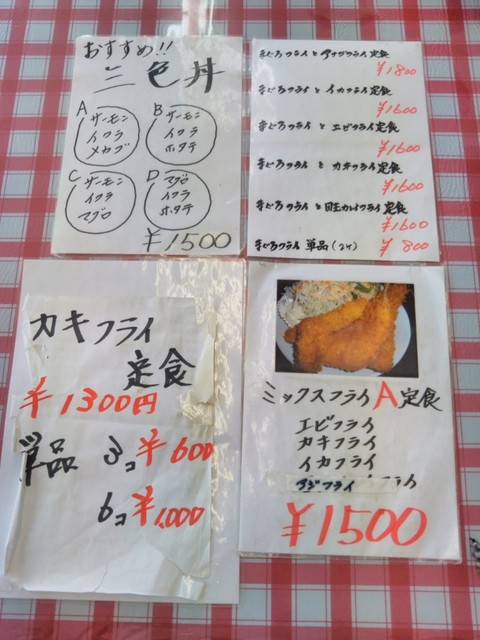 おすすめ!!
三色丼
A サーモン イクラ メカブ
B サーモン イクラ ホタテ
C サーモン イクラ マグロ
D マグロ イクラ ホタテ
¥1500
まぐろフライと アナゴフライ定食
¥1800
まぐろフライと イカフライ定食
¥1600
まぐろフライと エビフライ定食
¥1600
まぐろフライと カキフライ定食
¥1600
まぐろフライと 目玉カレイフライ定食
¥1600
まぐろフライ 単品(2ケ) ¥800
カキフライ
定食
¥1300円
単品 3コ ¥600
6コ ¥1,000
ミックスフライA定食
エビフライ
カキフライ
イカフライ
アジフライ
¥1500